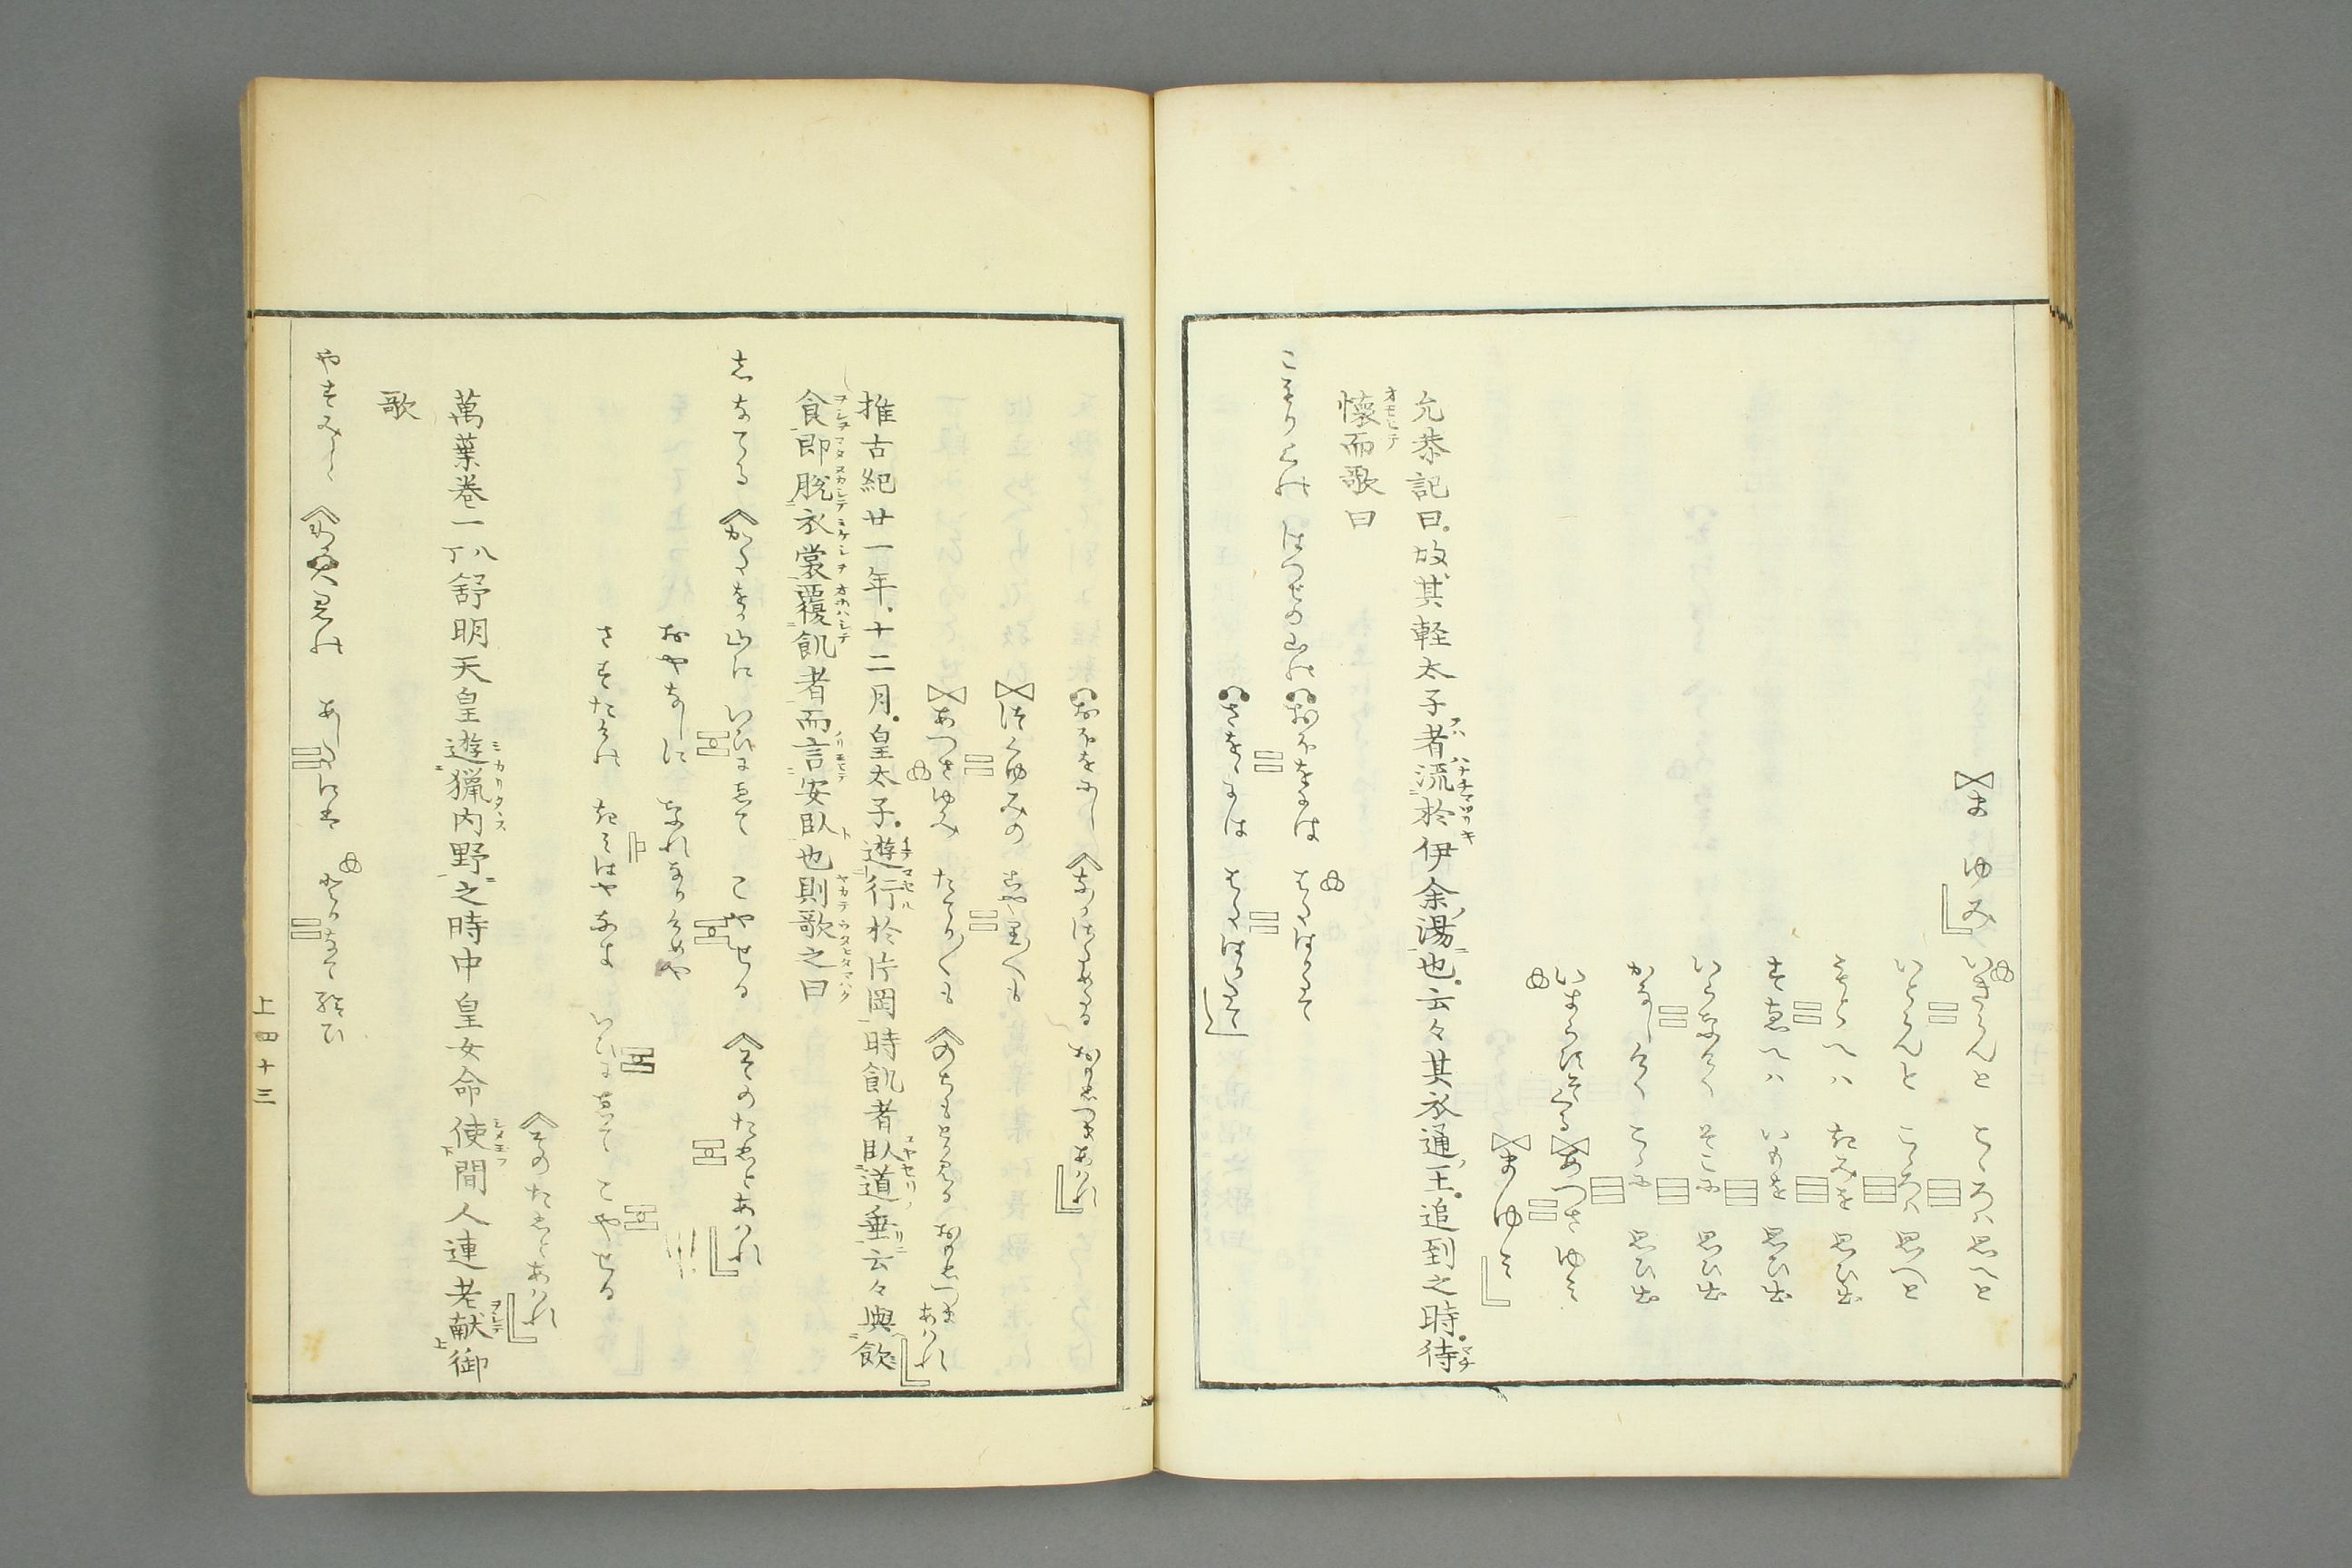 ま ゆみ
いきらんと こゝろハ思へと
いとらんと こゝろハ思へと
もとへハ きみを 思ひ出
すゑへハ いもを 思ひ出
いらなけく そこに 思ひ出
かなしけく こゝに 思ひ出
いきらすそくる あつさゆミ
まゆミ
允恭記曰。故其軽太子者流於伊余湯也。云々其衣通王。追到之時。待
懐而歌曰
こもりくの はつせの山の おほをには はたはりたて
さをゝには はたはりたて
おほをにし なかさためる おもひつまあはれ
つくゆみの こやるこやりも
あつさゆみ たてりたてりも のちもとりみる おもひつまあはれ
推古紀廿一年。十二月。皇太子。遊行於片岡時飢者臥道垂云々與飲
食即脱衣裳覆飢者而言安臥也則歌之曰
しなてる かたをか山に いひにゑて こやせる そのたひとあはれ
おやなしに なれなりけめや
さすたけの きミはやなき いひにゑて こやせる
そのたひとあはれ
萬葉巻一丁八舒明天皇遊猟内野之時中皇女命使間人連老献御
歌
やすみしゝ わか大君の あしたには とりなて給ひ
上四十三